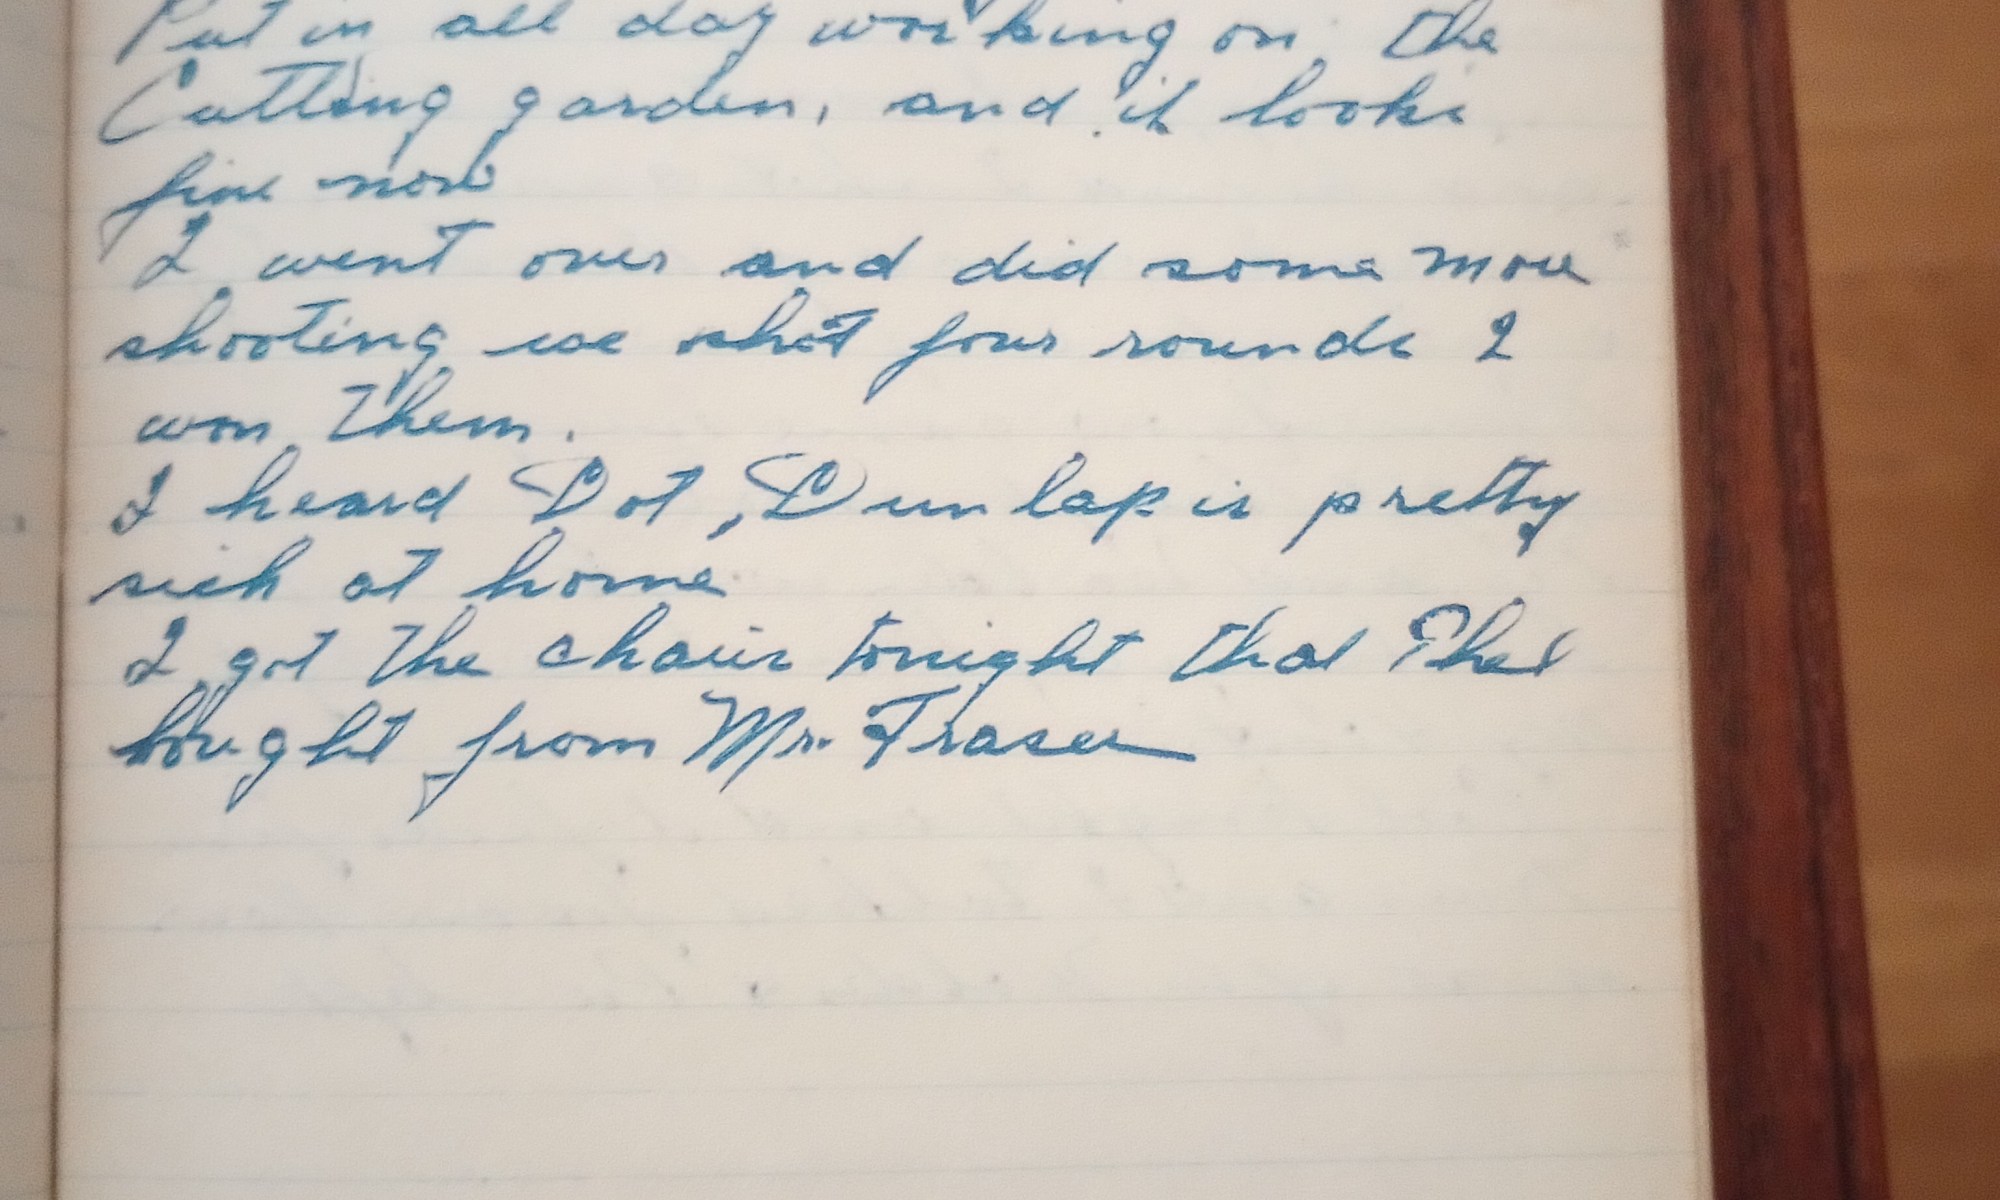 Put in all day working on the
Cutting garden, and it looks
fine now
I went over and did some more
shooting we shot four rounds I
won them.
I heard Dot, Dunlap is pretty
sick at home
I got the chair tonight that
bought from Mr. Fraser